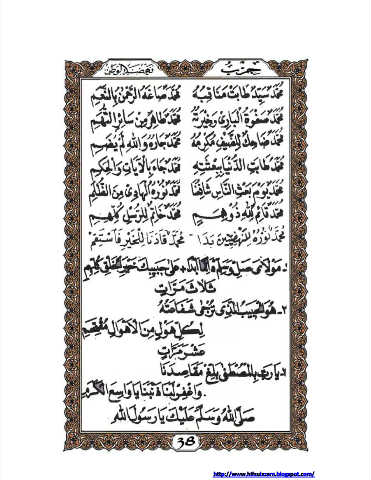 حزب نهضة الوطن
محمد سيد طابت مناقبه محمد صاغه الرحمن بالنعم
محمد صفوة الباري وخيرته محمد طاهر من سائر التهم
محمد ضاحك للضيف مكرمة محمد جاره والله لم يضم
محمد طابت الدنيا ببعثته محمد جاء بالآيات والحكم
محمد يوم بعث الناس شافعنا محمد نوره الهادي من الظلم
محمد قائم لله ذو همم محمد خاتم للرسل كلهم
محمد نوره للنهضيين بدا - محمد قادنا للخير فاستقم
١. مولاي صل وسلم دائما أبدا + على حبيبك خير الخلق كلهم
ثلاث مرات
٢- هو الحبيب الذي ترجى شفاعته
لكل هول من الأهوال مقتحم
عشر مرات
٣. يا رب بالمصطفى بلغ مقاصدنا
واغفر لنا ما مضى يا واسع الكرم
صلى الله وسلم عليك يا رسول الله
38
http://www.hifsuizzam.blogspot.com/